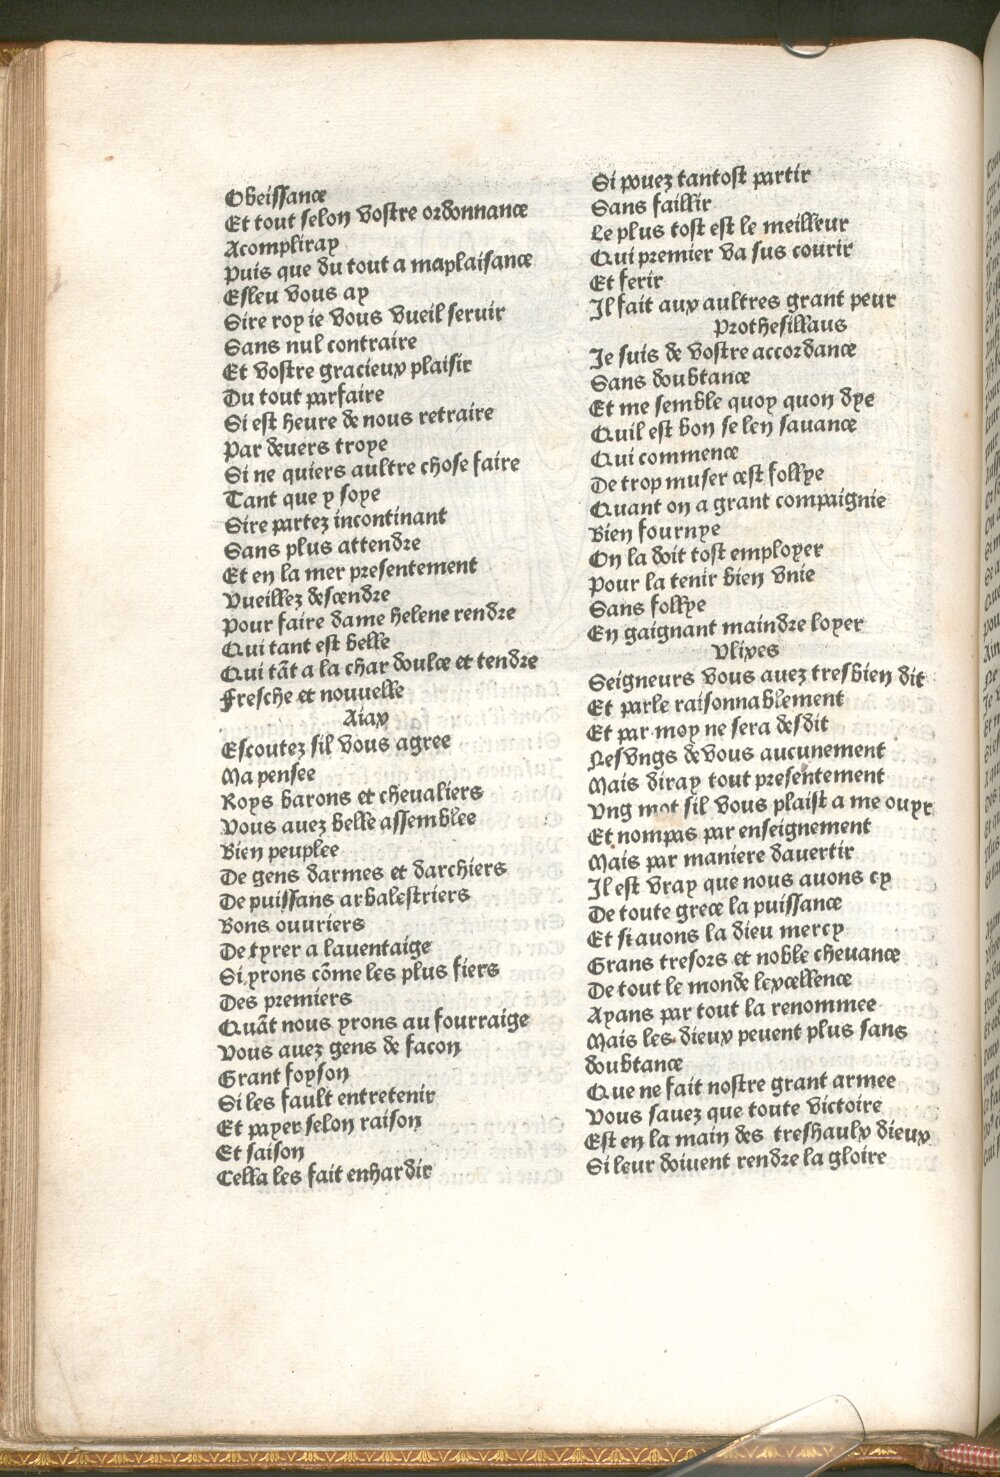 Obeissance
Et tout selon vostre ordonnance
Acompliray
Puis que du tout a maplaisance
Esleu vous ay
Sire roy ie vous vueil seruir
Sans nul contraire
Et vostre gracieux plaisir
Du tout parfaire
Si est heure de nous retraire
Par deuers troye
Si ne quiers aultre chose faire
Tant que y soye
Sire partez incontinant
Sans plus attendre
Et en la mer presentement
Vueillez descendre
Pour faire dame helene rendre
Qui tant est belle
Qui tãt a la char doulce et tendre
Fresche et nouuelle
Aiax
Escoutez sil vous agree
Ma pensee
Roys barons et cheualiers
Vous auez belle assemblee
Bien peuplee
De gens darmes et darchiers
De puissans arbalestriers
Bons ouuriers
De tyrer a lauentaige
Si yrons cõme les plus fiers
Des premiers
Quãt nous yrons au fourraige
Vous auez gens de facon
Grant foyson
Si les fault entretenir
Et payer selon raison
Et saison
Cella les fait enhardir
Si pouez tantost partir
Sans faillir
Le plus tost est le meilleur
Qui premier va sus courir
Et ferir
Il fait aux aultres grant peur
Prothesillaus
Je suis de vostre accordance
Sans doubtance
Et me semble quoy quon dye
Quil est bon se len sauance
Qui commence
De trop muser cest follye
Quant on a grant compaignie
Bien fournye
On la doit tost employer
Pour la tenir bien vnie
Sans follye
En gaignant maindre loyer
Vlixes
Seigneurs vous auez tresbien dit
Et parle raisonnablement
Et par moy ne sera desdit
Nesvngs de vous aucunement
Mais diray tout presentement
Vng mot sil vous plaist a me ouyr
Et nompas par enseignement
Mais par maniere dauertir
Il est vray que nous auons cy
De toute grece la puissance
Et si auons la dieu mercy
Grans tresors et noble cheuance
De tout le monde lexcellence
Ayans par tout la renommee
Mais les dieux peuent plus sans
doubtance
Que ne fait nostre grant armee
Vous sauez que toute victoire
Est en la main des treshaulx dieux
Si leur doiuent rendre la gloire